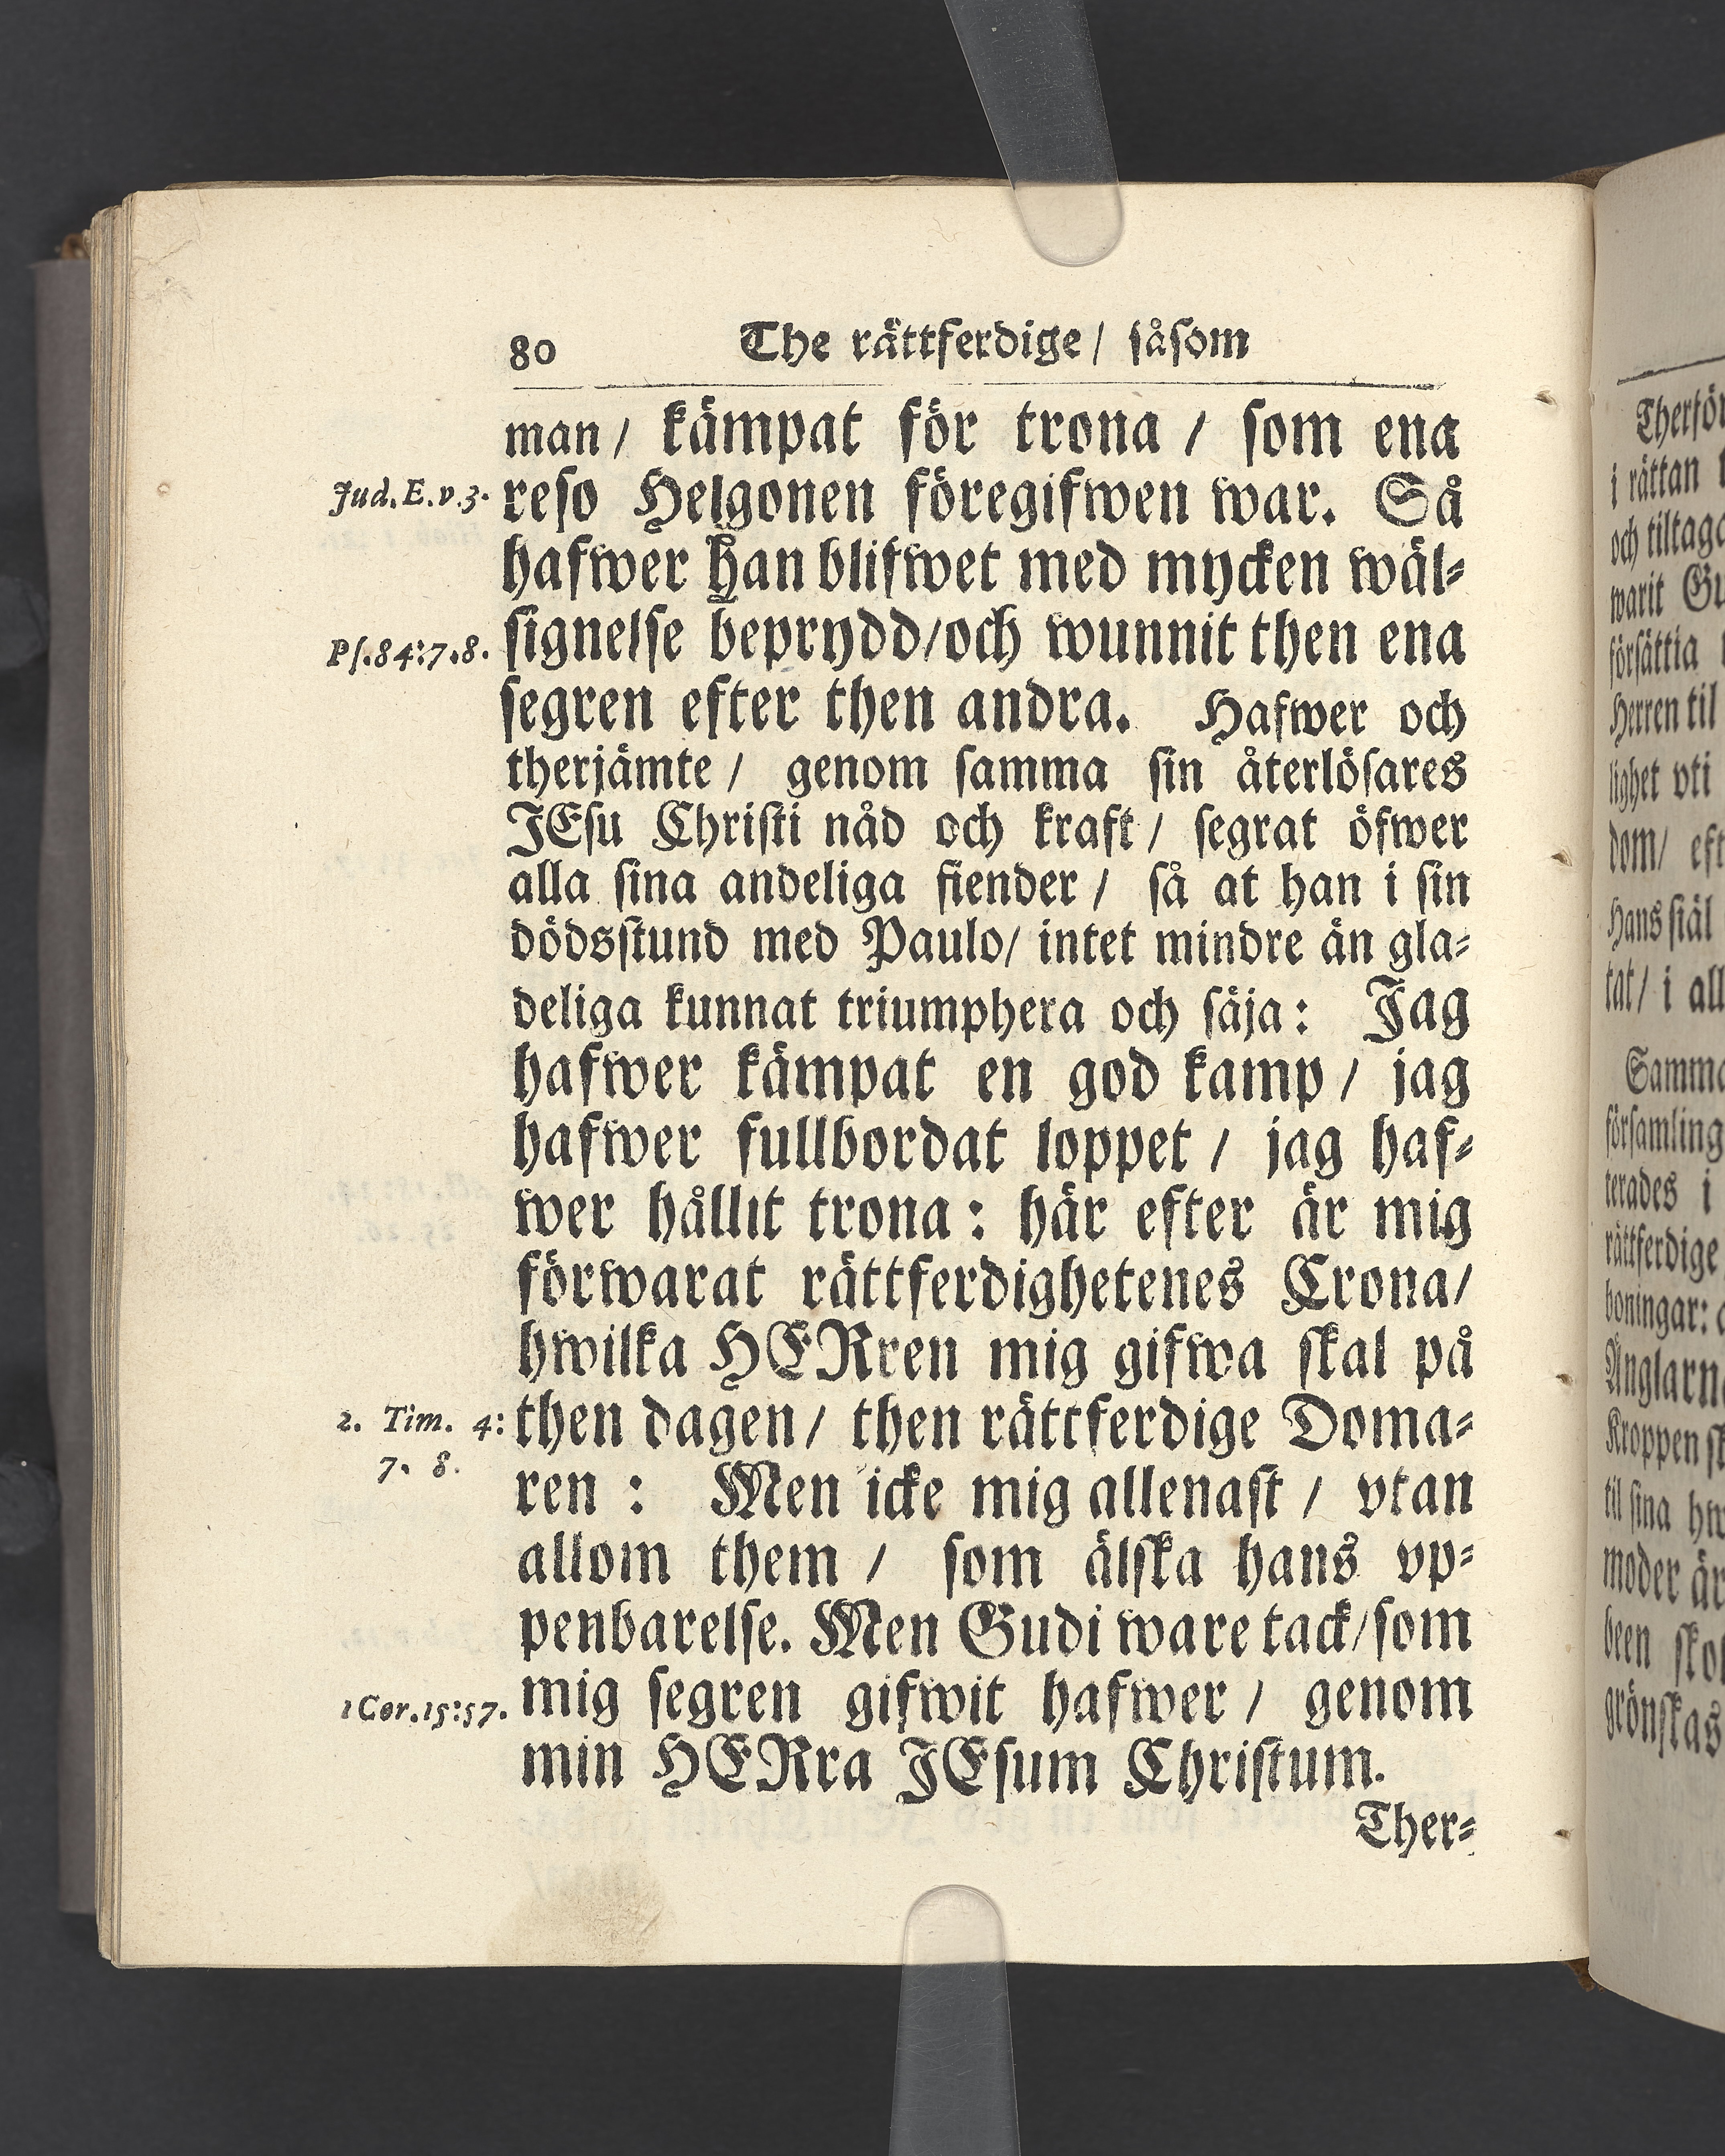 80 The rättferdige/ såsom
man/ kämpat för trona / som ena
Jud. E. v. 3. reso Helgonen föregifwen war. Så
hafwer Han blifwet med mycken wäl-
Ps. 84:7.8. signelse beprydd/och wunnit then ena
segren efter then andra. Hafwer och
therjämte / genom samma sin återlösares
JEsu Christi nåd och kraft/ segrat öfwer
alla sina andeliga fiender / så at han i sin
dödsstund med Paulo/ intet mindre än gla-
deliga kunnat triumphera och säja: Jag
hafwer kämpat en god kamp / jag
hafwer fullbordat loppet / jag haf-
wer hållit trona : här efter är mig
förwarat rättferdighetenes Crona/
hwilka HERren mig gifwa skal på
2. Tim. 4: then dagen/ then rättferdige Doma-
7. 8. ren : Men icke mig allenast / vtan
allom them / som älska hans vp-
penbarelse. Men Gudi ware tack/som
1 Cor. 15:57. mig segren gifwit hafwer / genom
min HERra JEsum Christum.
Ther-
i rättan
och tiltaga
warit
Herren til
lighet vti
dom/
Hans siäl
tat/ i
i
rättferdige
boningar:
Kroppen
til sina
moder är
been
grönskas